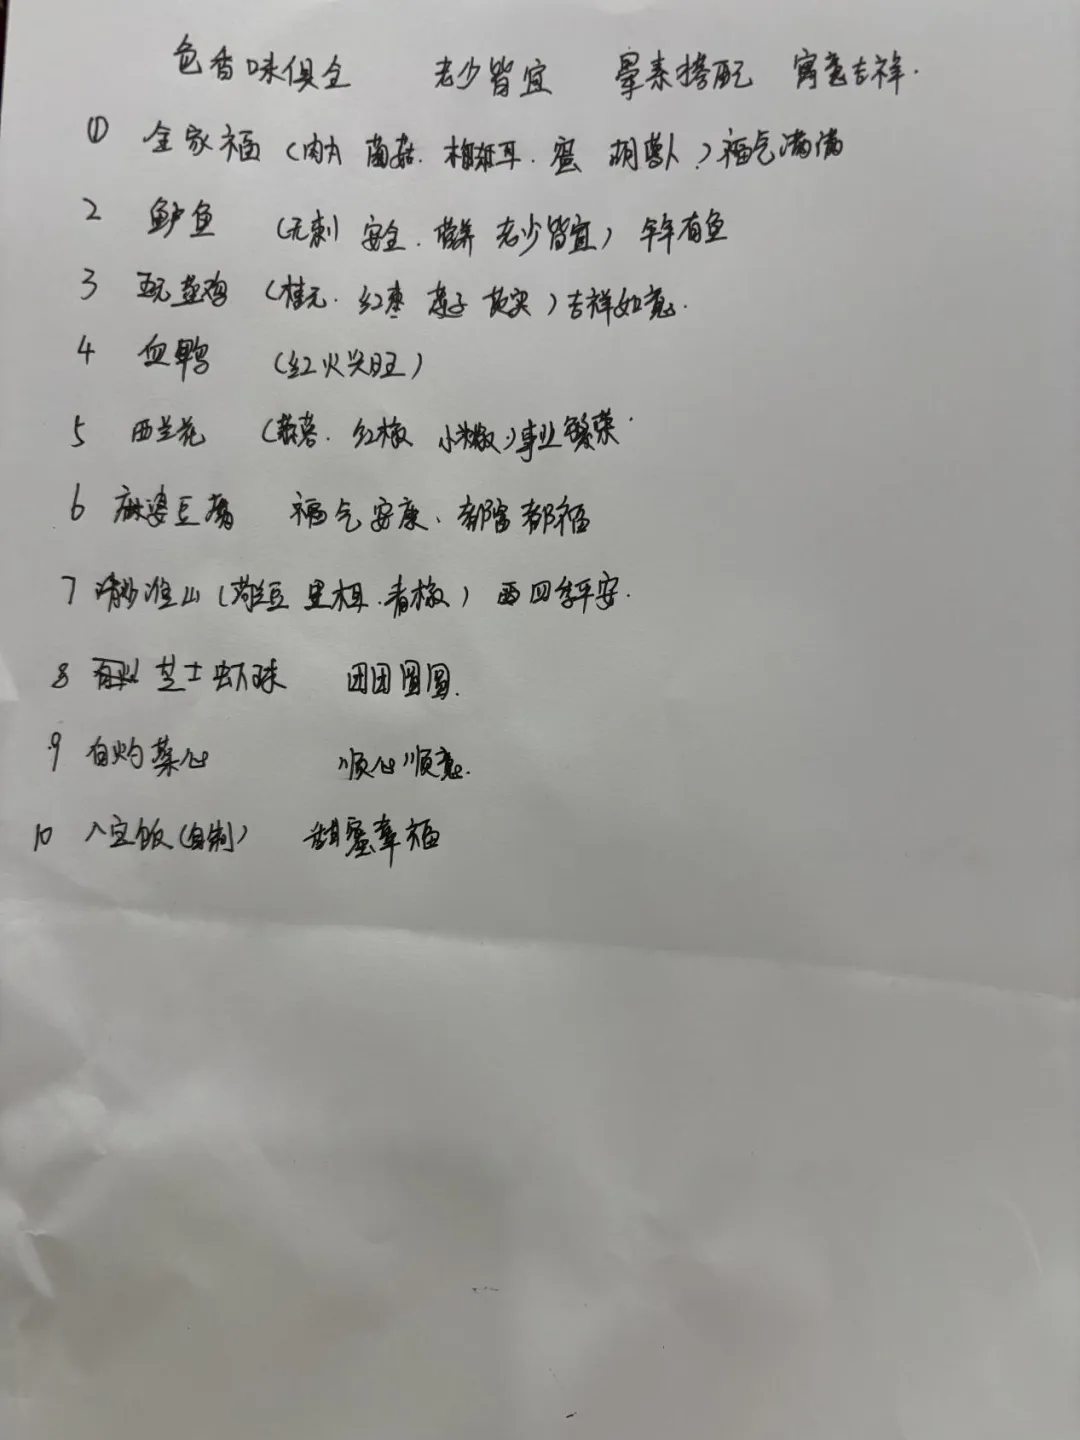 色香味俱全 老少皆宜 荤素搭配 寓意吉祥.
① 全家福 (肉丸 菌菇. 木耳. 蛋 胡萝卜) 福气满满
2 鲈鱼 (无刺 安全. 营养 老少皆宜) 年年有鱼
3 五元蒸鸡 (桂元. 红枣 莲子 芡实) 吉祥如意.
4 血鸭 (红火兴旺)
5 西兰花 (红椒 小米椒) 事业繁荣.
6 麻婆豆腐 福气安康、都富都福
7 清炒淮山 (荷兰豆 黑木耳.青椒) 四季平安.
8 芝士虾球 团团圆圆.
9 白灼菜心 顺心顺意.
10 八宝饭 (自制) 甜蜜幸福